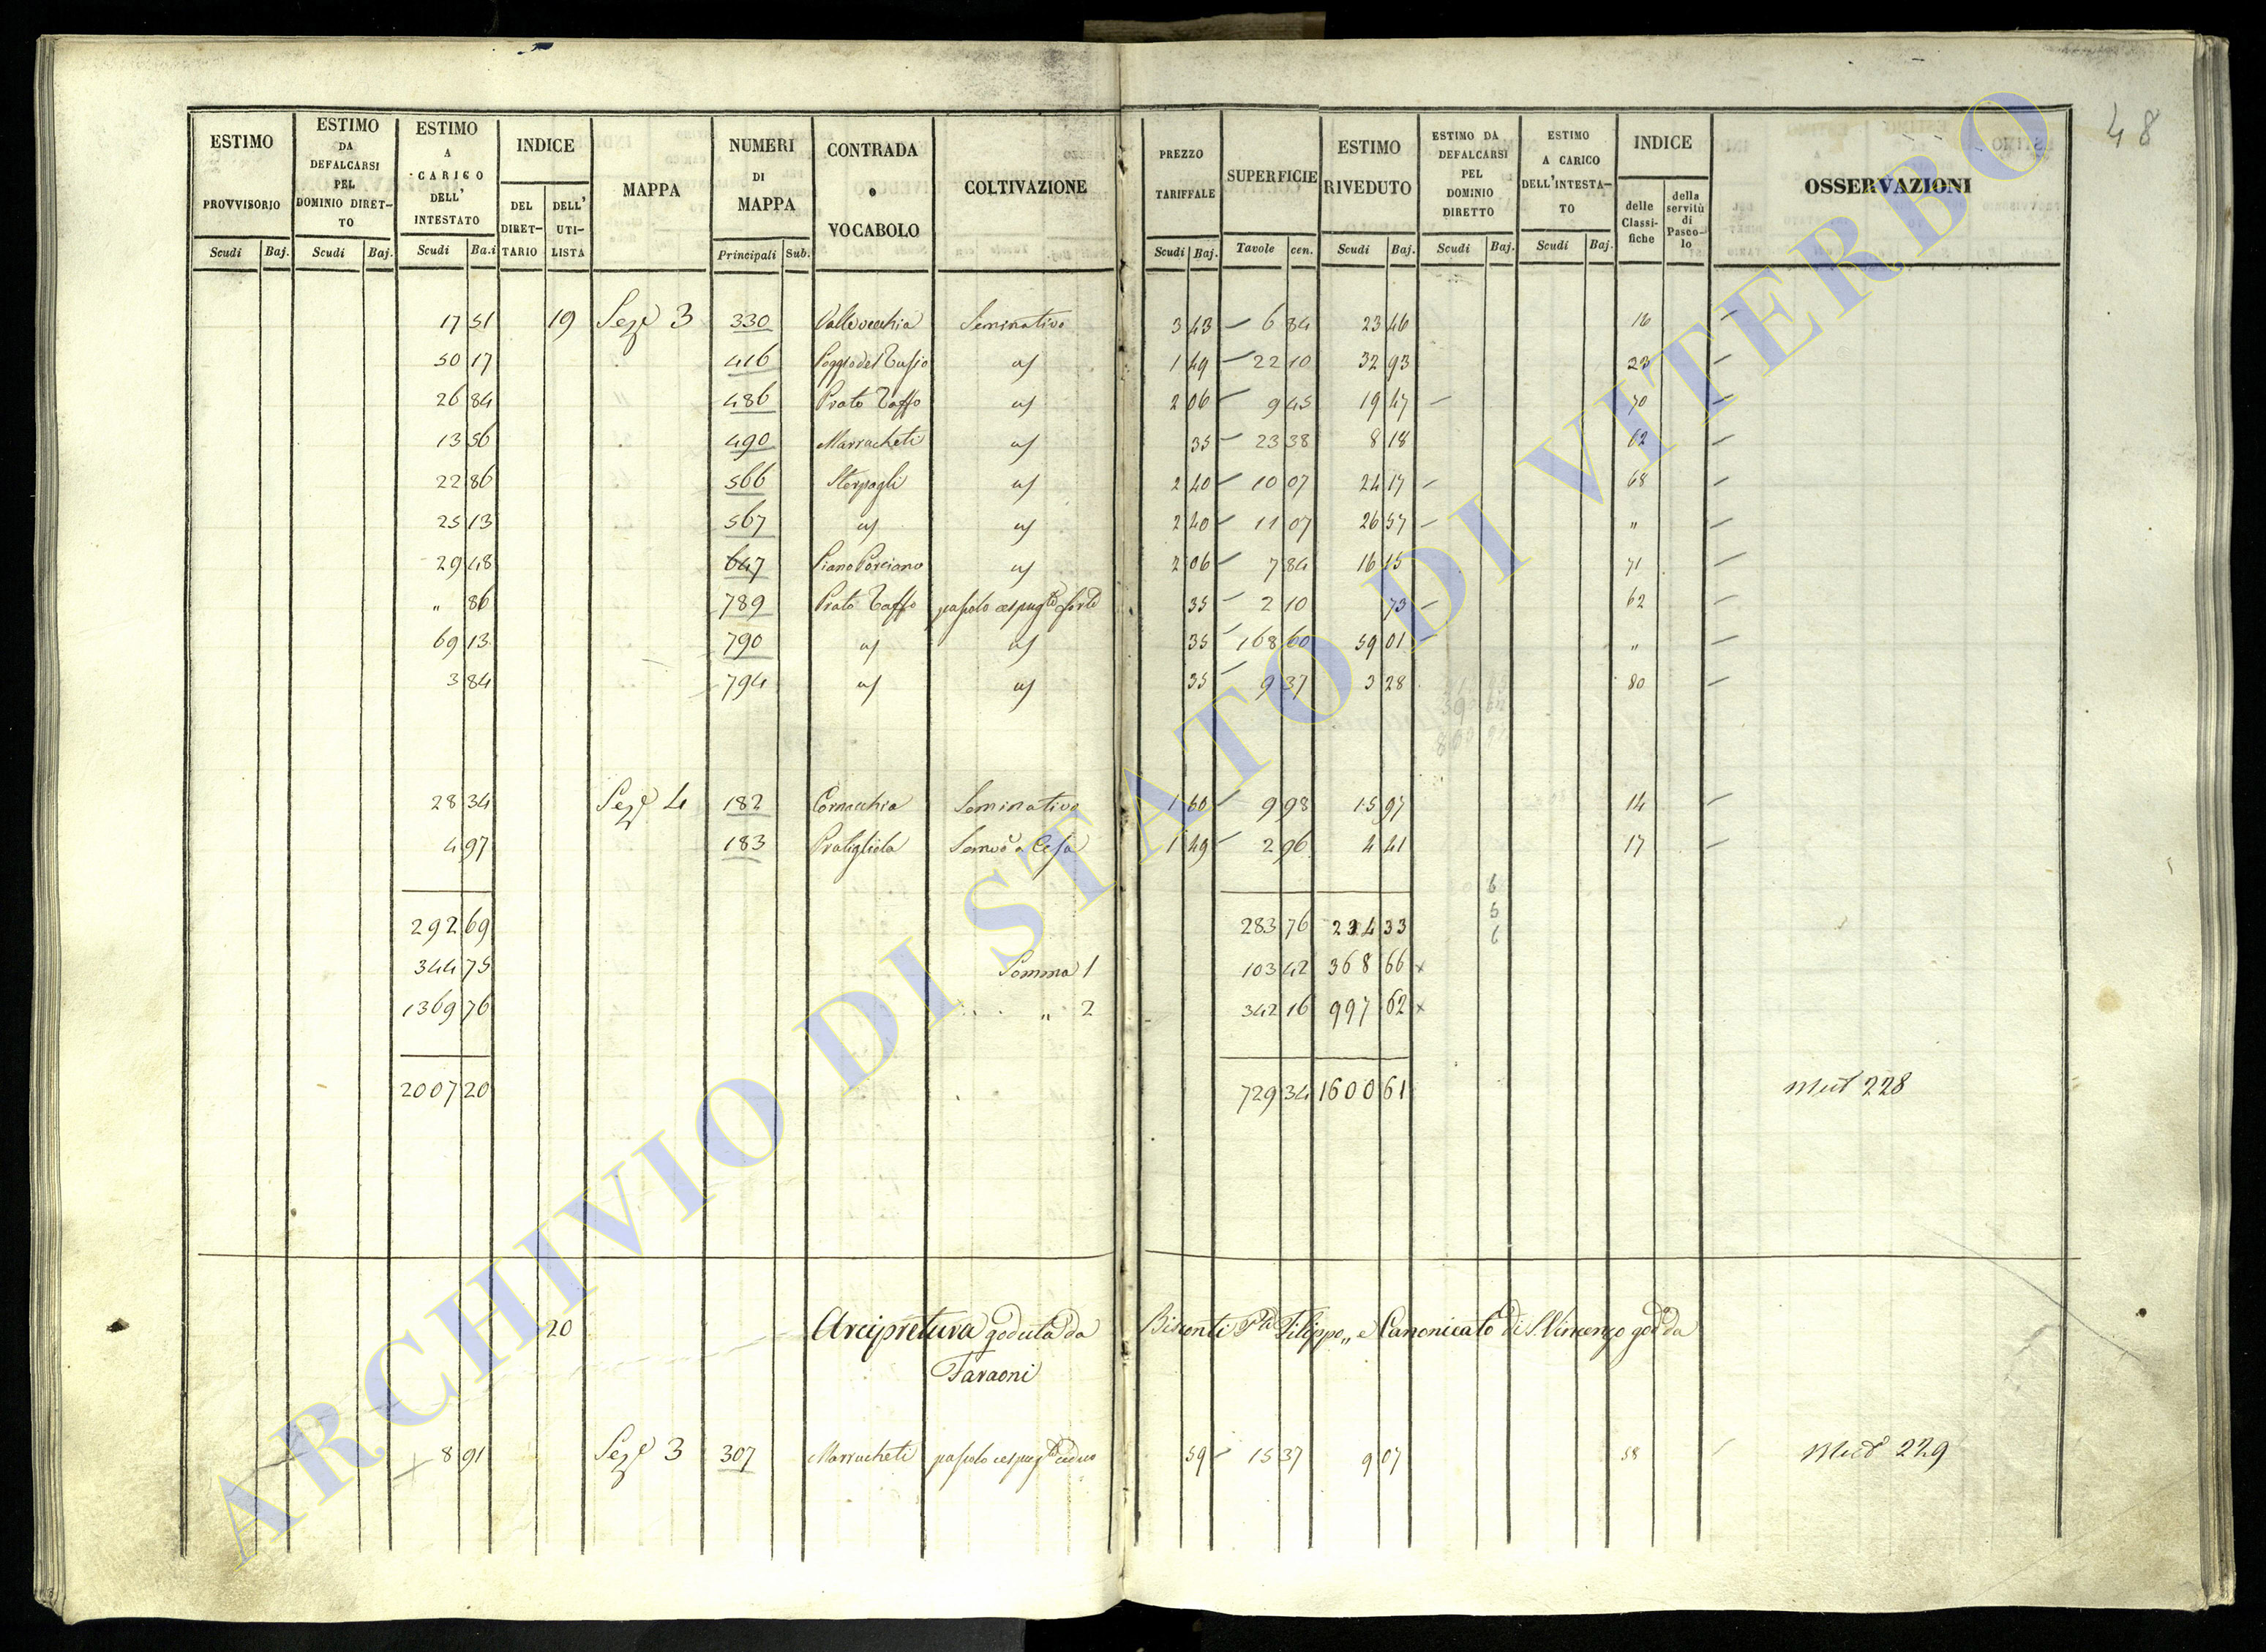 48
ESTIMO PROVVISORIO Scudi Baj.
ESTIMO DA DEFALCARSI PEL DOMINIO DIRET-TO Scudi Baj.
ESTIMO A CARICO DELL' INTESTATO Scudi Ba.i
INDICE DEL DIRET-TARIO DELL' UTI-LISTA
MAPPA
NUMERI DI MAPPA Principali Sub.
CONTRADA o VOCABOLO
COLTIVAZIONE
PREZZO TARIFFALE Scudi Baj.
SUPERFICIE Tavole cen.
ESTIMO RIVEDUTO Scudi Baj.
ESTIMO DA DEFALCARSI PEL DOMINIO DIRETTO Scudi Baj.
ESTIMO A CARICO DELL'INTESTA-TO Scudi Baj.
INDICE delle Classi-fiche della servitù di Pasco-lo
OSSERVAZIONI
17 51 19 Sezᵉ 3 330 Vallevecchia Seminativo 3 43 – 6 84 23 46 16 –
50 17 416 Poggio del Tufio uſ 1 49 – 22 10 32 93 23 –
26 84 " 486 Prato Toffo uſ 2 06 – 9 45 19 47 – 70 –
13 56 490 Marracheti uſ 35 – 23 38 8 18 62 –
22 86 566 Sterpagli uſ 2 40 – 10 07 24 17 – 68 –
25 13 567 uſ uſ 2 40 – 11 07 26 57 – " –
29 48 647 Piano Porciano uſ 2 06 – 7 84 16 15 71 –
" 86 789 Prato Toffo pascolo cespugto forte 35 – 2 10 73 – 62 –
69 13 790 uſ uſ 35 – 168 60 59 01 – " –
3 84 794 uſ uſ 35 – 9 37 3 28 80 –
28 34 Sezᵉ 4 182 Cornacchia Seminativo 1 60 – 9 98 15 97 14 –
4 97 183 Pratigliola Semvo a Cesa 1 49 – 2 96 4 41 17 –
6
5
6
292 69 283 76 234 33
344 75 Somma 1 103 42 368 66 x
1369 76 " 2 342 16 997 62 x
2007 20 729 34 1600 61 Mut 228
20 Arcipretura goduta da Bisconti Filippo „ e Canonicato di S. Vincenzo godo da
Faraoni
8 91 Sezᵉ 3 307 Marracheti pascolo cespugto ceduo 59 – 15 37 9 07 58 – Mut 229
ARCHIVIO DI STATO DI VITERBO